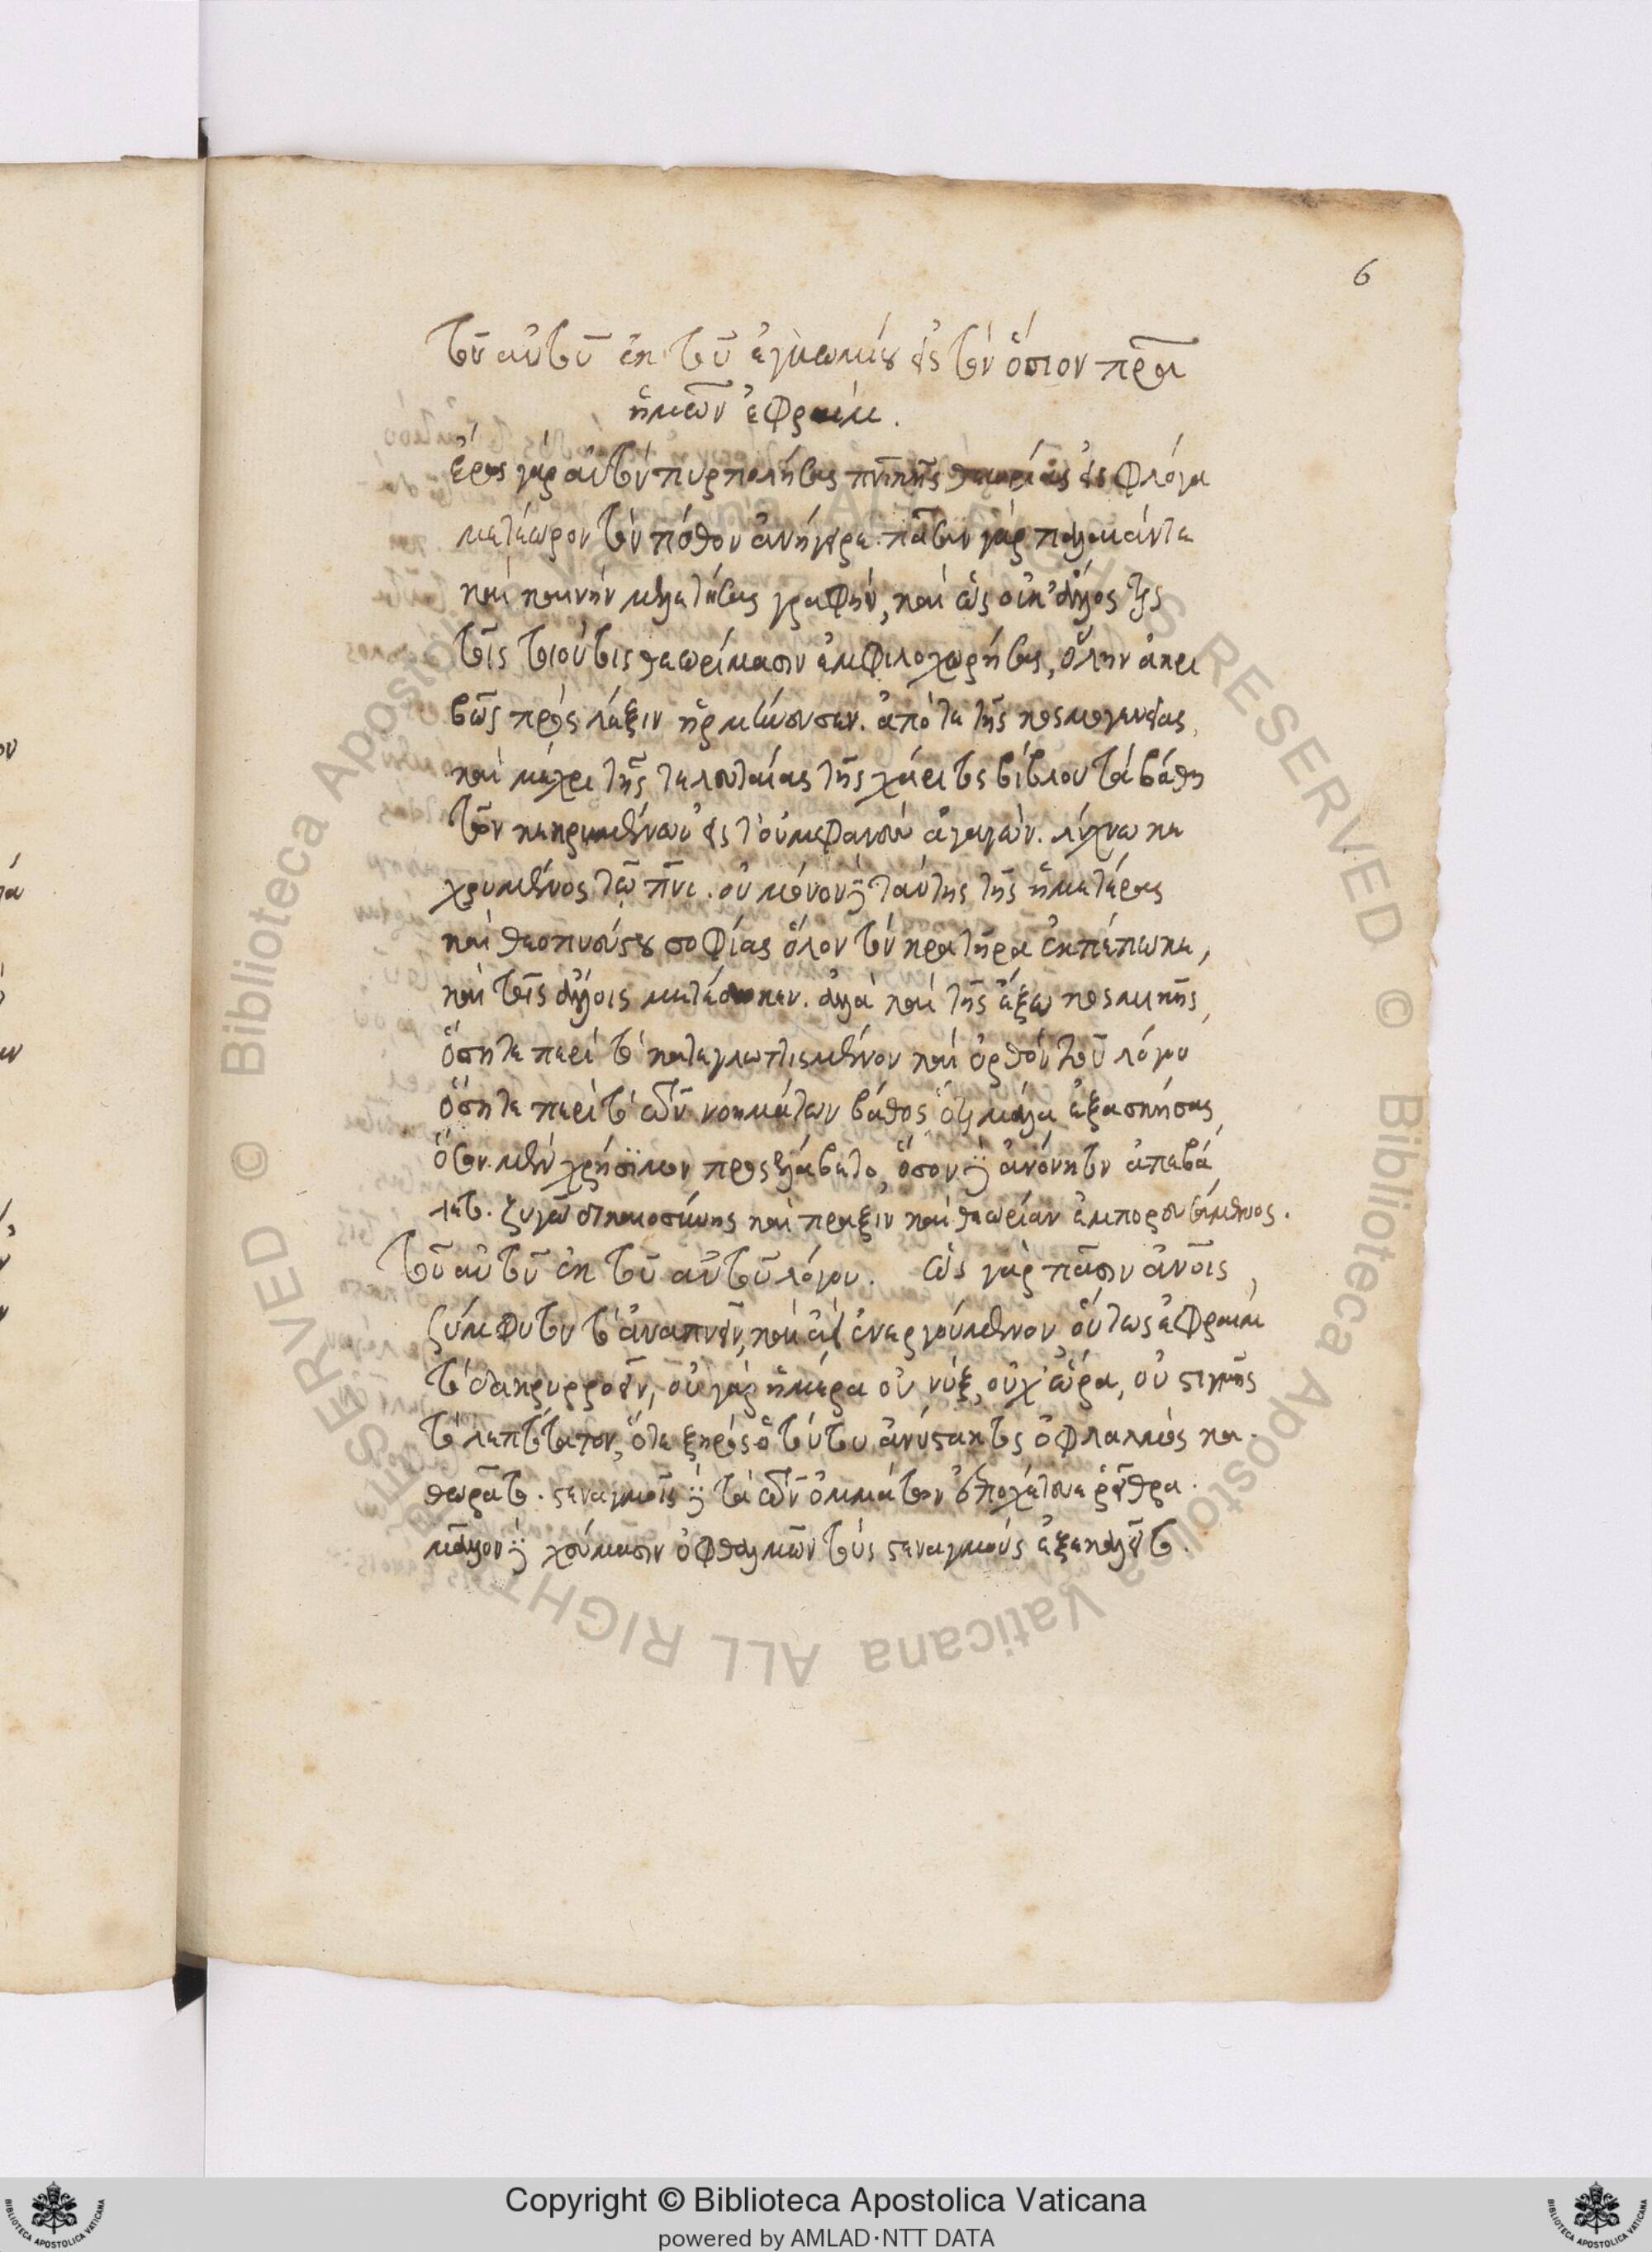 6
τοῦ αὐτοῦ ἐκ τοῦ ἐγκωμίου εἰς τὸν ὅσιον πρα
ἡμῶν ἐφραίμ.
ἔρως γὰρ αὐτὸν πυρπολήσας πνικῆς θεωρίας εἰς φλόγα
μετέωρον τὸν πόθον ἀνήγειρε. πᾶσαν γὰρ παλαιάν τε
καὶ καινὴν μελετήσας γραφὴν, καὶ ὡς οὐκ ἄλλος τις
τοῖς τοιούτοις θεωρήμασιν ἐμφιλοχωρήσας, ὅλην ἀκρι
βῶς πρὸς λέξιν ἡρμήνευσεν. ἀπό τε τῆς κοσμογενείας,
καὶ μέχρι τῆς τελευταίας τῆς χάριτος βίβλου τὰ βάθη
τῶν κεκρυμμένων εἰς τοὐμφανὲς ἀγαγών. λύχνω κε
χρημένος τῶ πνι. οὐ μόνον δὲ ταύτης τῆς ἡμετέρας
καὶ θεοπνεύστου σοφίας ὅλον τὸν κρατῆρα ἐκπέπωκε,
καὶ τοῖς ἄλλοις μετέδωκεν. ἀλλὰ καὶ τῆς ἔξω κοσμικῆς,
ὅση τε περὶ τὸ κατεγλωττισμένον καὶ ὀρθὸν τοῦ λόγου
ὅση τε περὶ τὸ τῶν νοημάτων βάθος ὅτι μάλα ἐξασκήσας,
ὅσον μὲν χρήσϊμον προσελάβετο, ὅσον δὲ ἀνόνητον ἀπεβά
λετο. ζυγῶ δικαιοσύνης καὶ πρᾶξιν καὶ θεωρίαν ἐμπορευσάμενος.
τοῦ αὐτοῦ ἐκ τοῦ αὐτοῦ λόγου. ὡς γὰρ πᾶσιν ἀνοις,
ξύμφυτον τὸ ἀναπνεῖν, καὶ ἀεὶ ἐνεργούμενον, οὕτως ἐφραὶμ
τὸ δακρυρροεῖν, οὐ γὰρ ἡμέρα οὐ νὺξ, οὐχ' ὥρα, οὐ στιγμῆς
τὸ λεπτότατον, ὅτε ξηρὸς ὁ τούτου ἀνύστακτος ὀφλαλμὸς κα
θωρᾶτο. στεναγμοῖς δὲ τὰ τῶν ὀμμάτων ὑπωχέτευε ῥεῖθρα.
μᾶλλον δὲ χεύμασιν ὀφθαλμῶν τοὺς στεναγμοὺς ἐξεκαλεῖτο.
Biblioteca Apostolica Vaticana ALL RIGHTS RESERVED ©
Copyright © Biblioteca Apostolica Vaticana
powered by AMLAD·NTT DATA